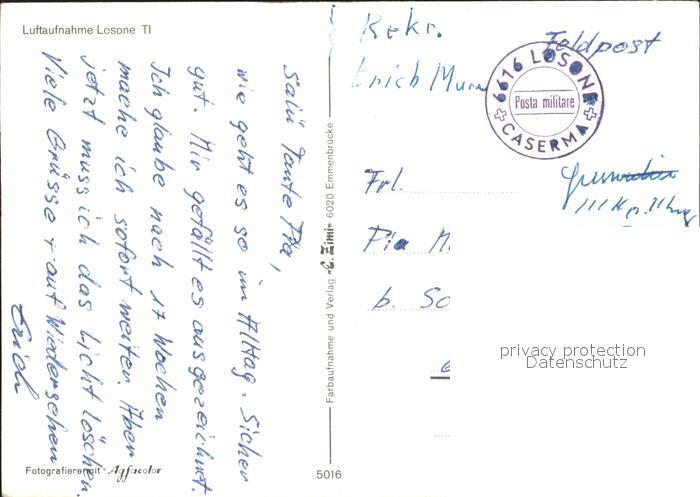 Luftaufnahme Losone TI
Salü Tante Pia,
wie geht es so im Alltag. Sicher
gut. Mir gefällt es ausgezeichnet.
Ich glaube nach 17 Wochen
mache ich sofort weiter. Aber
jetzt muss ich das Licht löschen.
Viele Grüsse + auf Wiedersehen
Erich
Fotografieren mit Agfacolor
Farbaufnahme und Verlag E. Zimi 6020 Emmenbrücke
5016
Rekr.
Erich
Feldpost
6616 LOSONE
Posta militare
CASERMA
III Kp.
Frl.
Pia M
b. Sc
privacy protection
Datenschutz